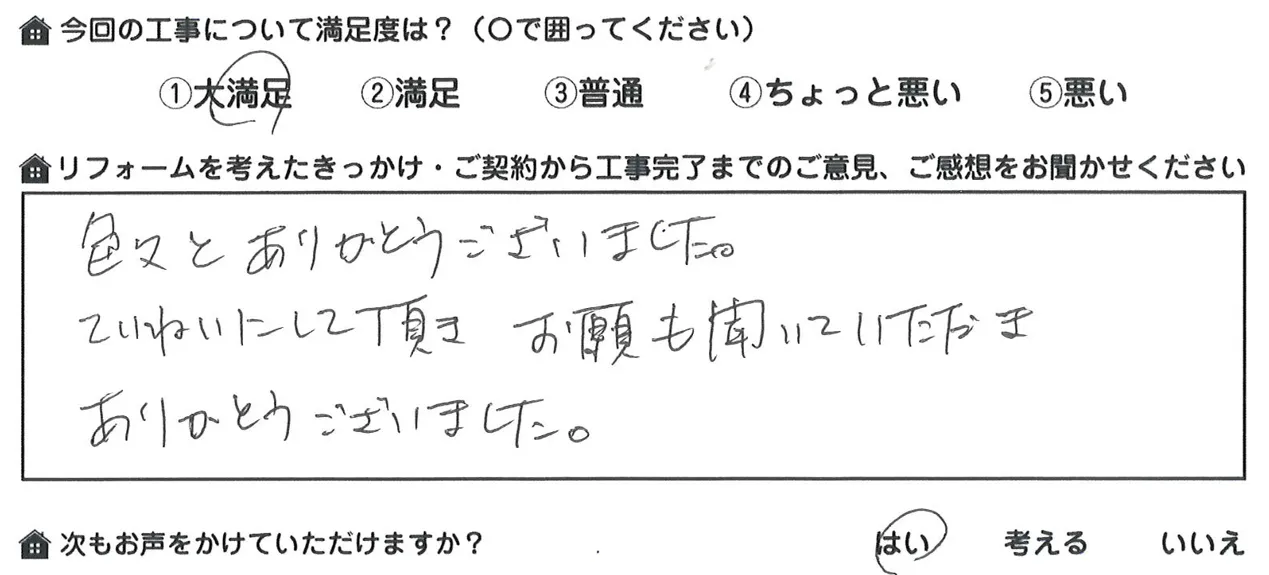 今回の工事について満足度は？（〇で囲ってください）
①大満足 ②満足 ③普通 ④ちょっと悪い ⑤悪い
リフォームを考えたきっかけ・ご契約から工事完了までのご意見、ご感想をお聞かせください
色々とありがとうございました。
ていねいにして頂き お願も聞いていただき
ありがとうございました。
次もお声をかけていただけますか？ はい 考える いいえ